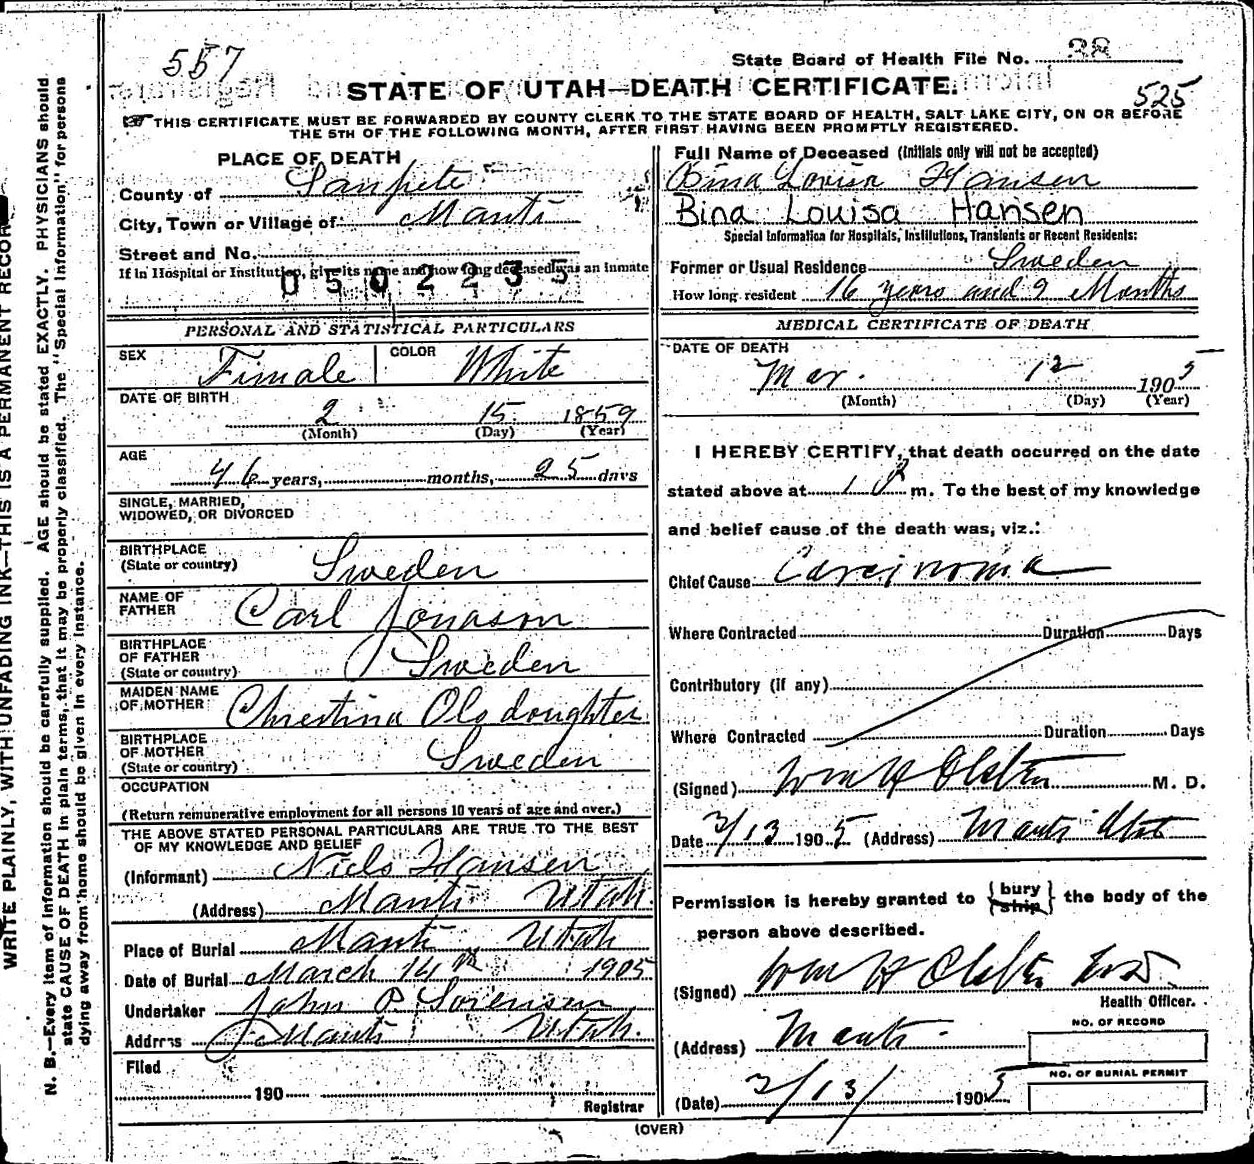 557
State Board of Health File No. 28
STATE OF UTAH—DEATH CERTIFICATE.
525
THIS CERTIFICATE MUST BE FORWARDED BY COUNTY CLERK TO THE STATE BOARD OF HEALTH, SALT LAKE CITY, ON OR BEFORE
THE 5TH OF THE FOLLOWING MONTH, AFTER FIRST HAVING BEEN PROMPTLY REGISTERED.
PLACE OF DEATH
County of Sanpete
City, Town or Village of Manti
Street and No.
If in Hospital or Institution, give its name and how long deceased was an inmate
0502235
PERSONAL AND STATISTICAL PARTICULARS
SEX Fimale COLOR White
DATE OF BIRTH
2 15 1859
(Month) (Day) (Year)
AGE
46 years, months, 25 days
SINGLE, MARRIED,
WIDOWED, OR DIVORCED
BIRTHPLACE
(State or country) Sweden
NAME OF
FATHER Carl Jonason
BIRTHPLACE
OF FATHER
(State or country) Sweden
MAIDEN NAME
OF MOTHER Chrestina Olsdoughter
BIRTHPLACE
OF MOTHER
(State or country) Sweden
OCCUPATION
(Return remunerative employment for all persons 10 years of age and over.)
THE ABOVE STATED PERSONAL PARTICULARS ARE TRUE TO THE BEST
OF MY KNOWLEDGE AND BELIEF
(Informant) Niels Hansen
(Address) Manti Utah.
Place of Burial Manti Utah
Date of Burial March 14th 1905
Undertaker John P. Sorensen
Address Manti Utah.
Filed
190
Registrar
Full Name of Deceased (Initials only will not be accepted)
Bina Lovisa Hansen
Bina Louisa Hansen
Special Information for Hospitals, Institutions, Transients or Recent Residents:
Former or Usual Residence Sweden
How long resident 16 years and 9 Months
MEDICAL CERTIFICATE OF DEATH
DATE OF DEATH
Mar. 12 1905
(Month) (Day) (Year)
I HEREBY CERTIFY, that death occurred on the date
stated above at 1 P m. To the best of my knowledge
and belief cause of the death was, viz.:
Chief Cause Carcinoma
Where Contracted Duration Days
Contributory (if any)
Where Contracted Duration Days
(Signed) Wm H Olsten M. D.
Date 3/13 1905 (Address) Manti Utah
Permission is hereby granted to {bury ship} the body of the
person above described.
(Signed) Wm H Olsten
Health Officer.
(Address) Manti
NO. OF RECORD
NO. OF BURIAL PERMIT
(Date) 3/13/ 1905
(OVER)
WRITE PLAINLY, WITH UNFADING INK—THIS IS A PERMANENT RECORD
N. B.—Every item of information should be carefully supplied. AGE should be stated EXACTLY. PHYSICIANS should
state CAUSE OF DEATH in plain terms, that it may be properly classified. The "Special Information" for persons
dying away from home should be given in every instance.